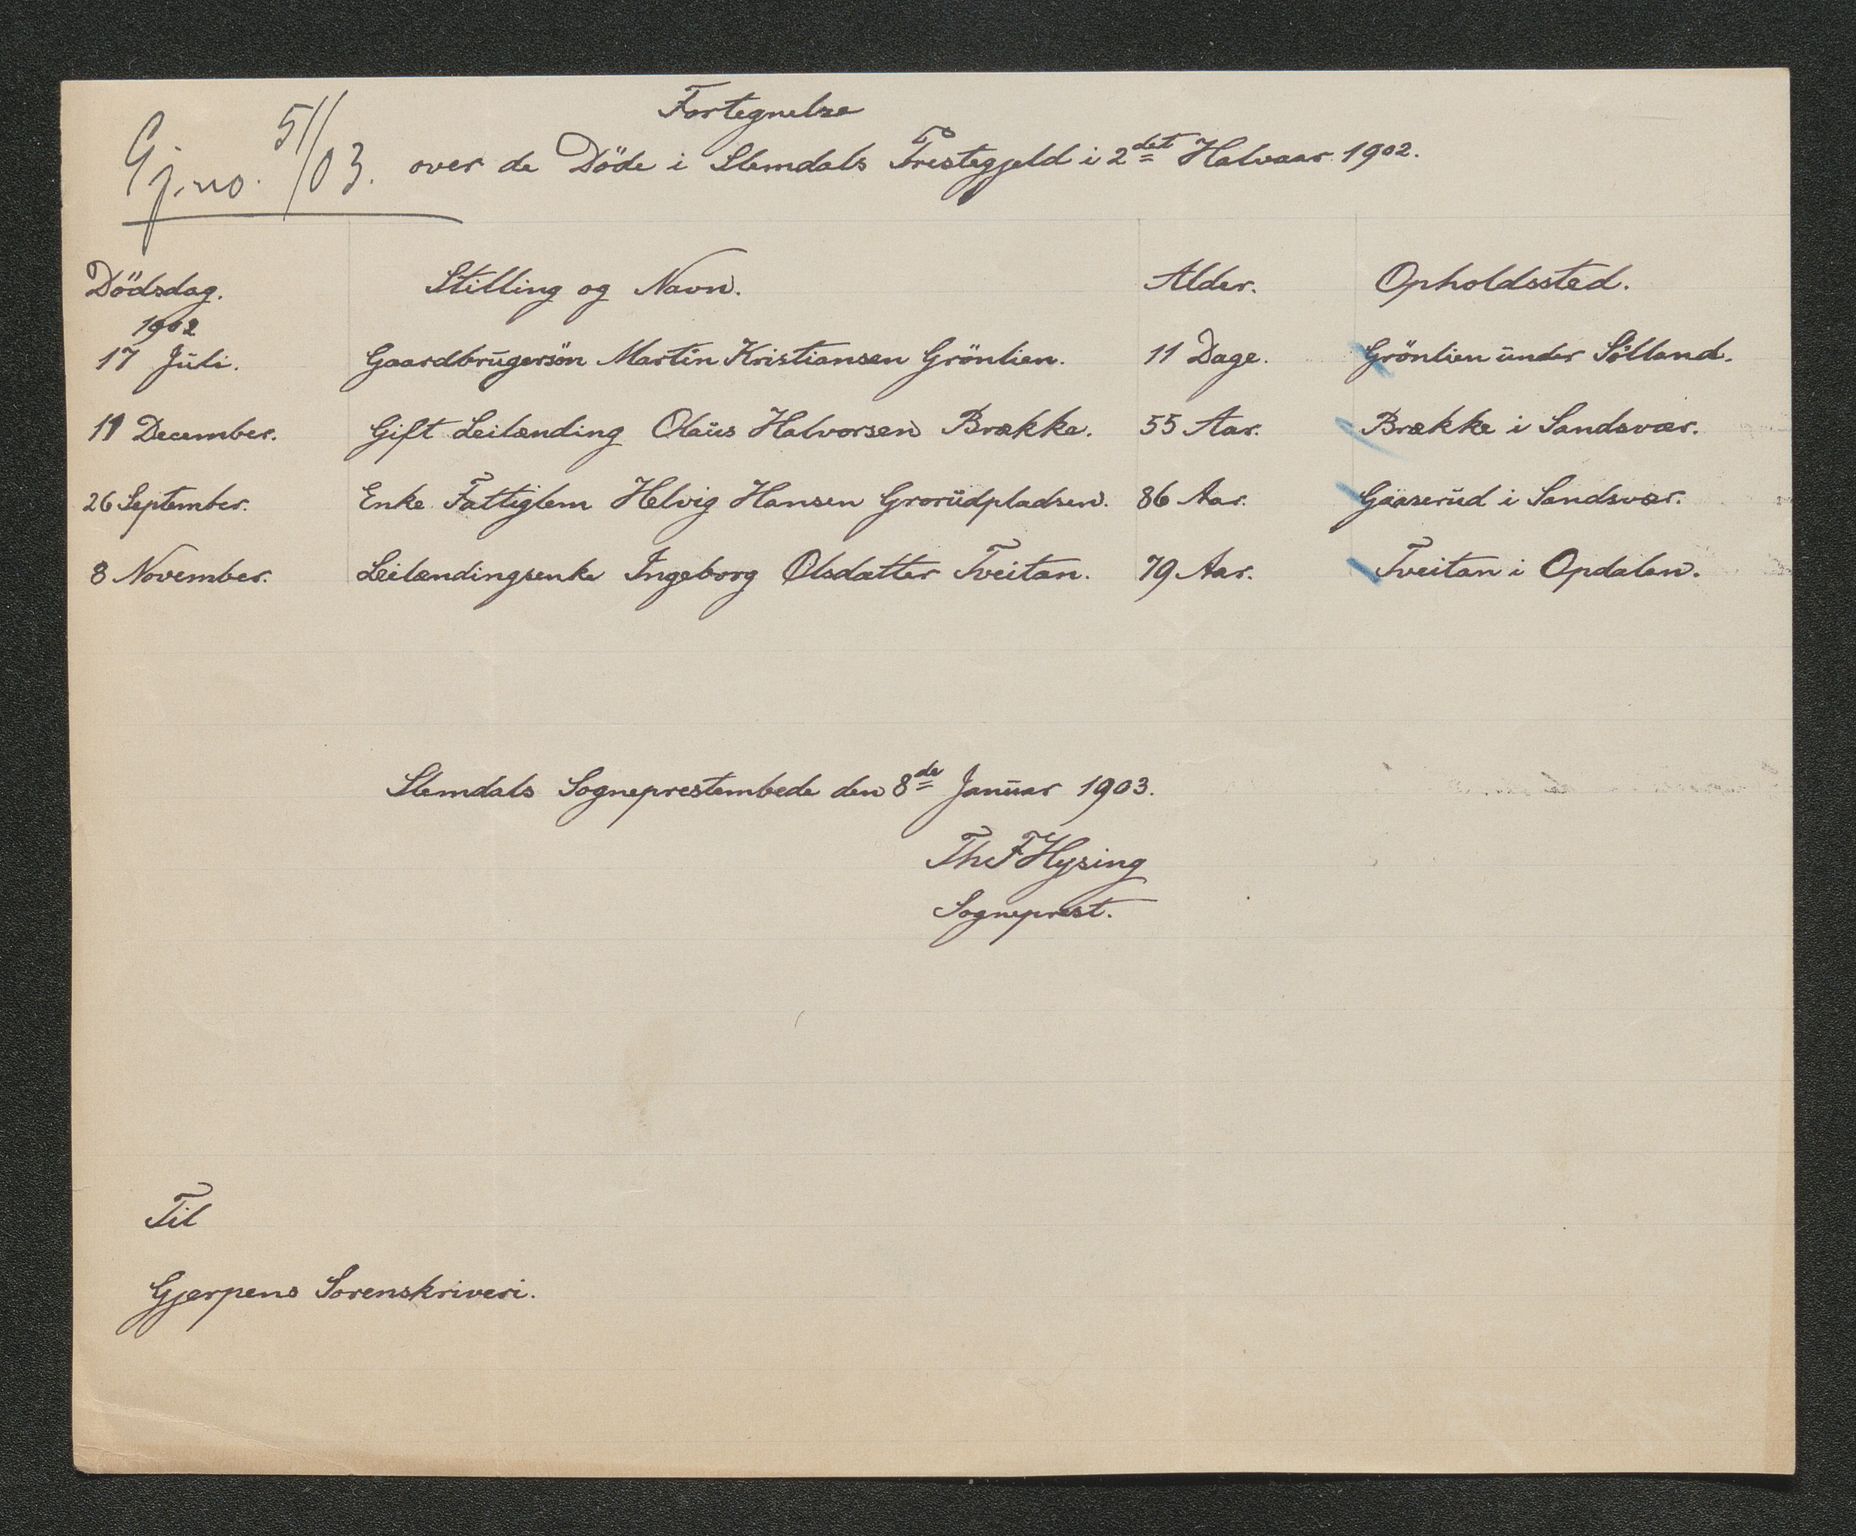 Fortegnelse
Gj.no. 51/03. over de Döde i Slemdals Prestegjeld i 2det Halvaar 1902.
Dödsdag. Stilling og Navn. Alder. Opholdssted.
1902
17 Juli. Gaardbrugersön Martin Kristiansen Grönlien. 11 Dage. Grönlien under Sölland.
11 December. Gift Leilænding Olaus Halvorsen Brække. 55 Aar. Brække i Sandsvær.
26 September. Enke Fattiglem Helvig Hansen Grorudpladsen. 86 Aar. Gaaserud i Sandsvær.
8 November. Leilændingsenke Ingeborg Olsdatter Tveitan. 79 Aar. Tveitan i Opdalen.
Slemdals Sogneprestembede den 8de Januar 1903.
Th. F Hysing
Sogneprest.
Til
Gjerpens Sorenskriveri.